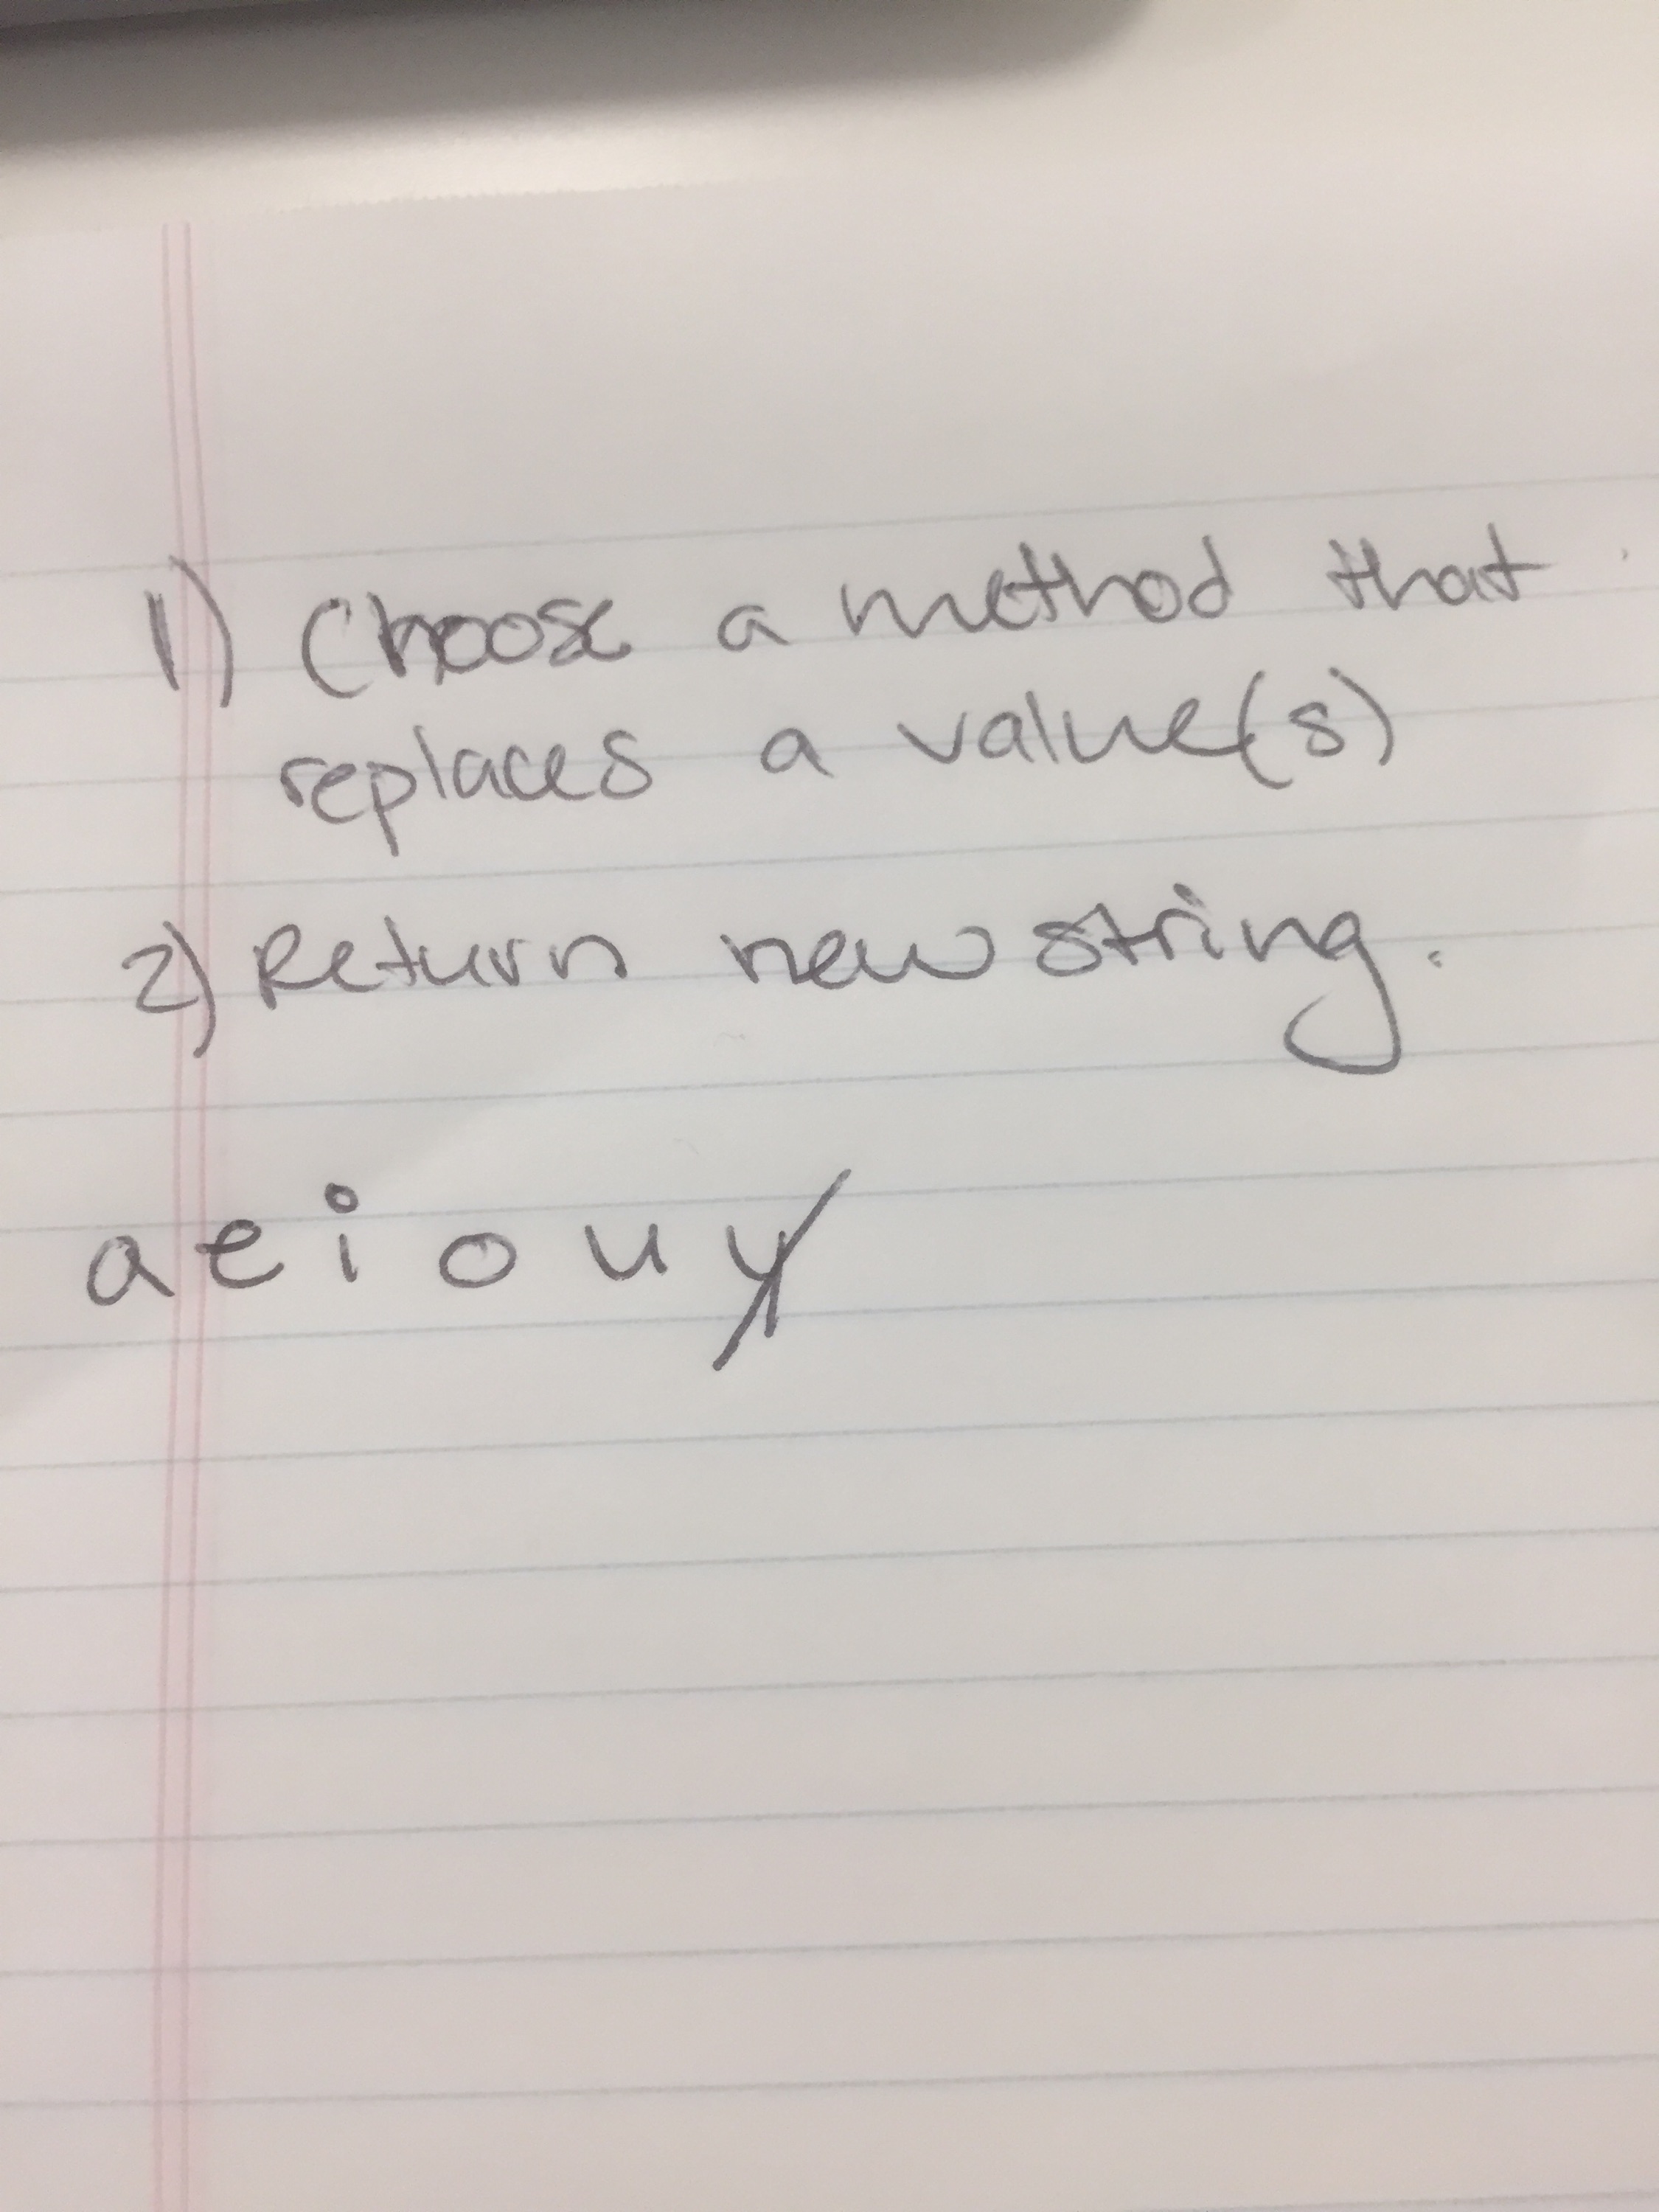 1) Choose a method that
replaces a value(s)
2) Return new string.
a e i o u y